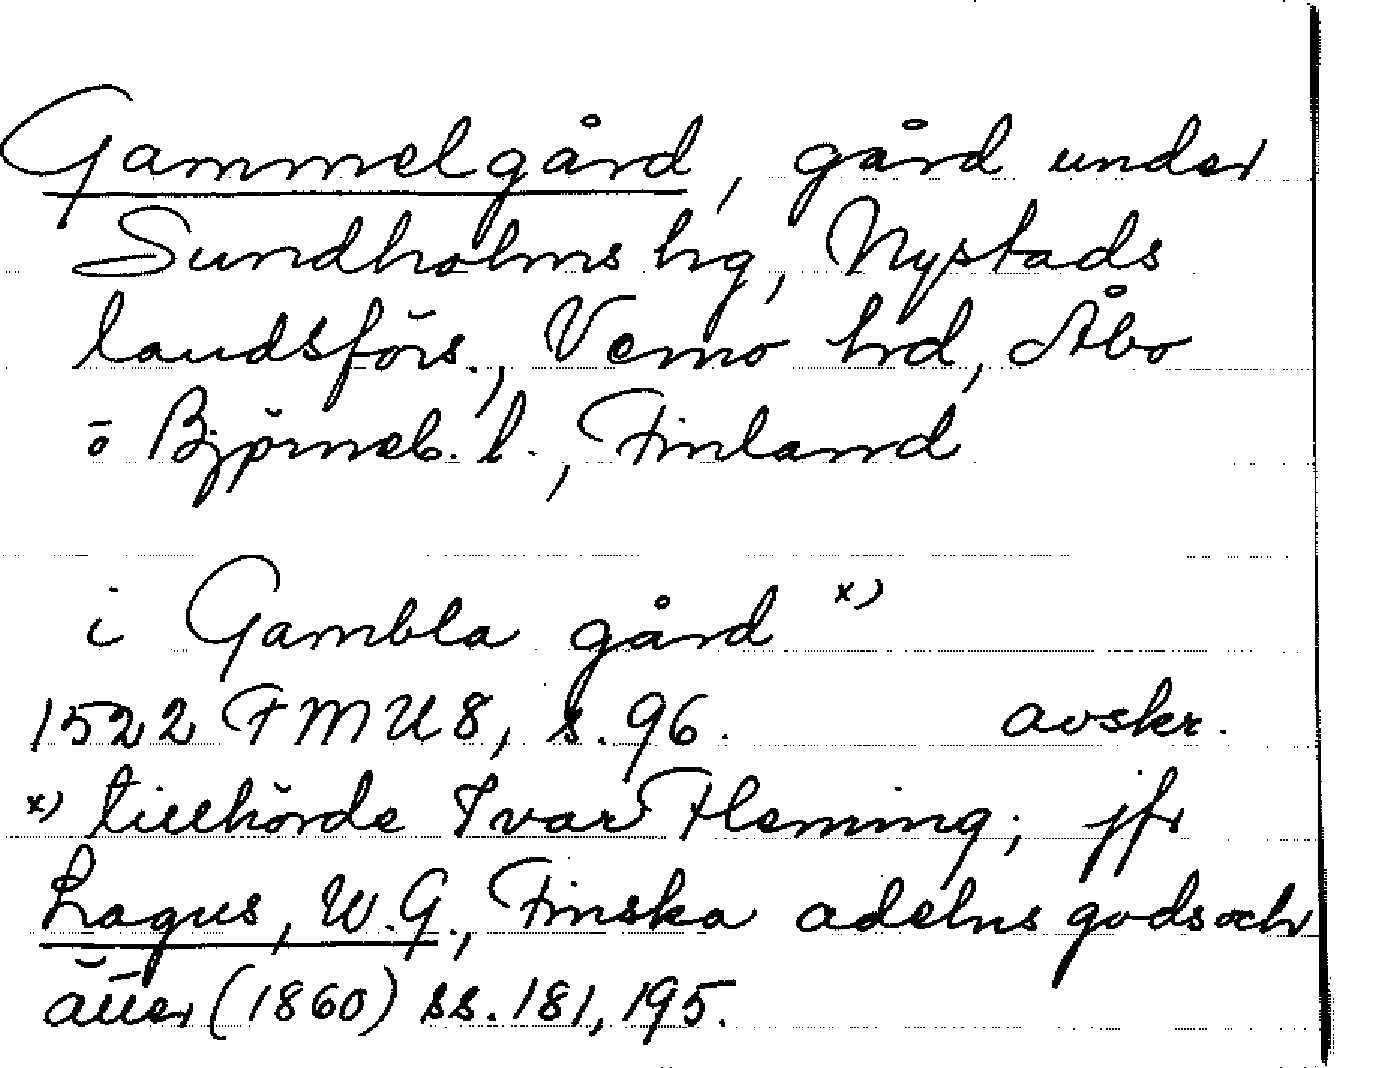 Gammelgård, gård under
Sundholms hg, Nystads
landsförs., Vemo hrd, Åbo
o Björneb. l., Finland
i Gambla gård x)
1522 FMU 8, s. 96. avskr.
x) tillhörde Ivar Fleming; jfr
Lagus, W.G., Finska adelns gods och
ätter (1860) ss. 181, 195.